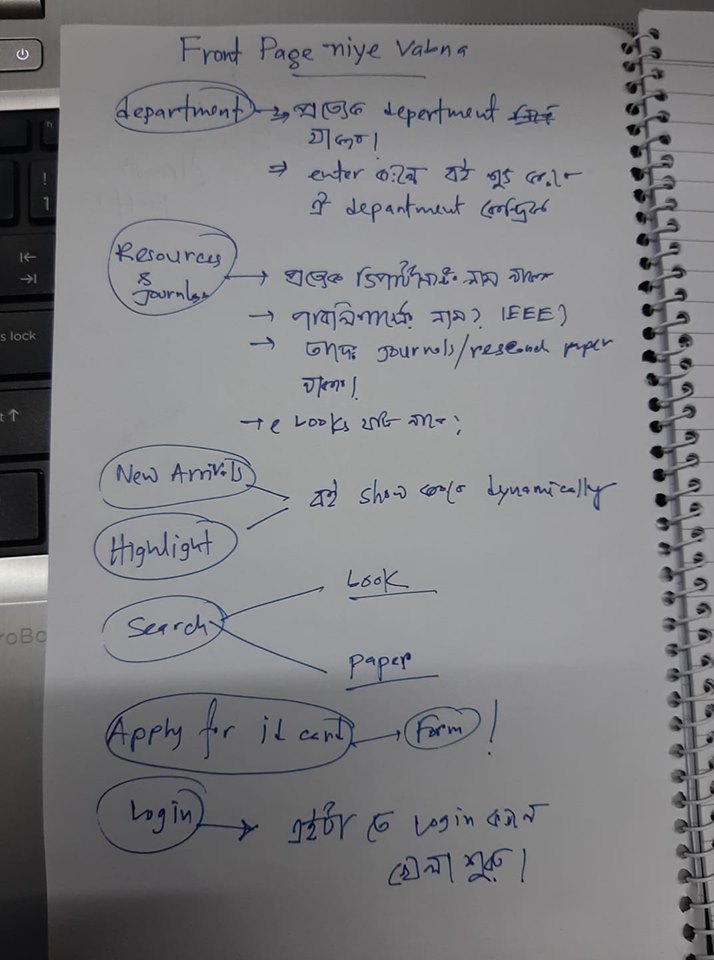 Front Page niye Vabna
department → প্রত্যেক depertment
থাকবে।
⇒ enter করলে বই শুরু হবে
ঐ department কেন্দ্রিক
Resources
&
Journals
→ প্রত্যেক ডিপার্টমেন্টের নাম থাকবে
→ পাবলিশার্সের নাম? IEEE?
→ তাদের Journals/research paper
থাকবে।
→ e books যদি থাকে;
New Arrivals
বই show করবে dynamically
Highlight
Search
book
paper
Apply for id card → Form !
Login → এইটা তে Login করলে
খেলা শুরু।